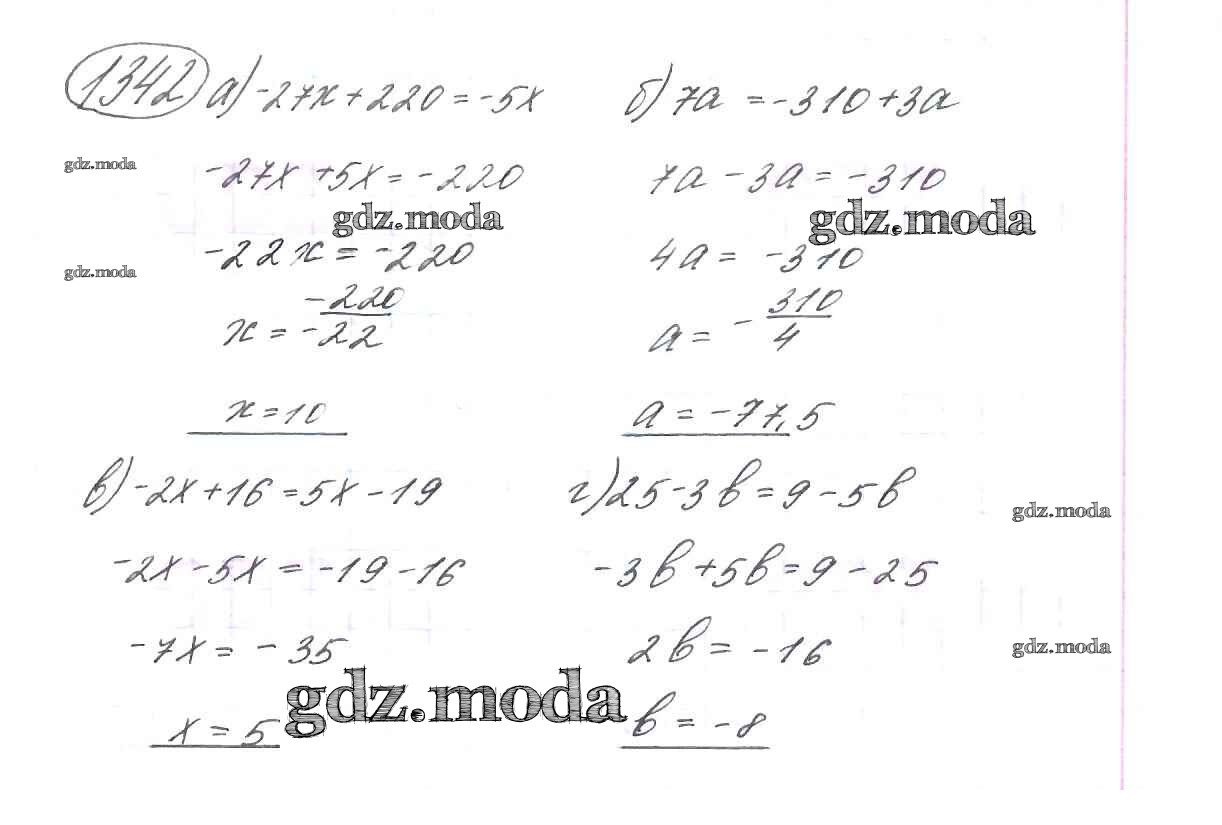 1342 а) -27x + 220 = -5x
gdz.moda
-27x + 5x = -220
gdz.moda
gdz.moda
-22x = -220
x = -220/-22
x = 10
б) 7a = -310 + 3a
7a - 3a = -310
gdz.moda
4a = -310
a = - 310/4
a = -77,5
в) -2x + 16 = 5x - 19
-2x - 5x = -19 - 16
-7x = -35
gdz.moda
x = 5
г) 25 - 3b = 9 - 5b
gdz.moda
-3b + 5b = 9 - 25
2b = -16
gdz.moda
b = -8